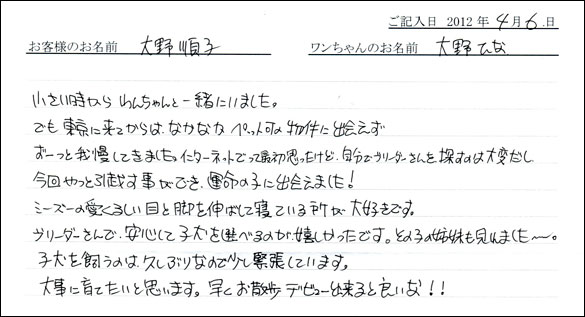 ご記入日 2012年4月6日
お客様のお名前 大野順子 ワンちゃんのお名前 大野ひな
小さい時から わんちゃんと一緒にいました。
でも東京に来てからは、なかなか ペット可の物件に出会えず
ずーっと我慢してきました。インターネットでって最初思ったけど、自分でブリーダーさんを探すのは大変だし
今回やっと引越す事ができ、運命の子に出会えました!
ミーズーの愛くるしい目と脚を伸ばして寝ている所が大好きです。
ブリーダーさんで、安心して子犬を選べるのが嬉しかったです。その子の姉妹も見れました〜。
子犬を飼うのは久しぶりなので少し緊張しています。
大事に育てたいと思います。早くお散歩デビュー出来ると良いな!!